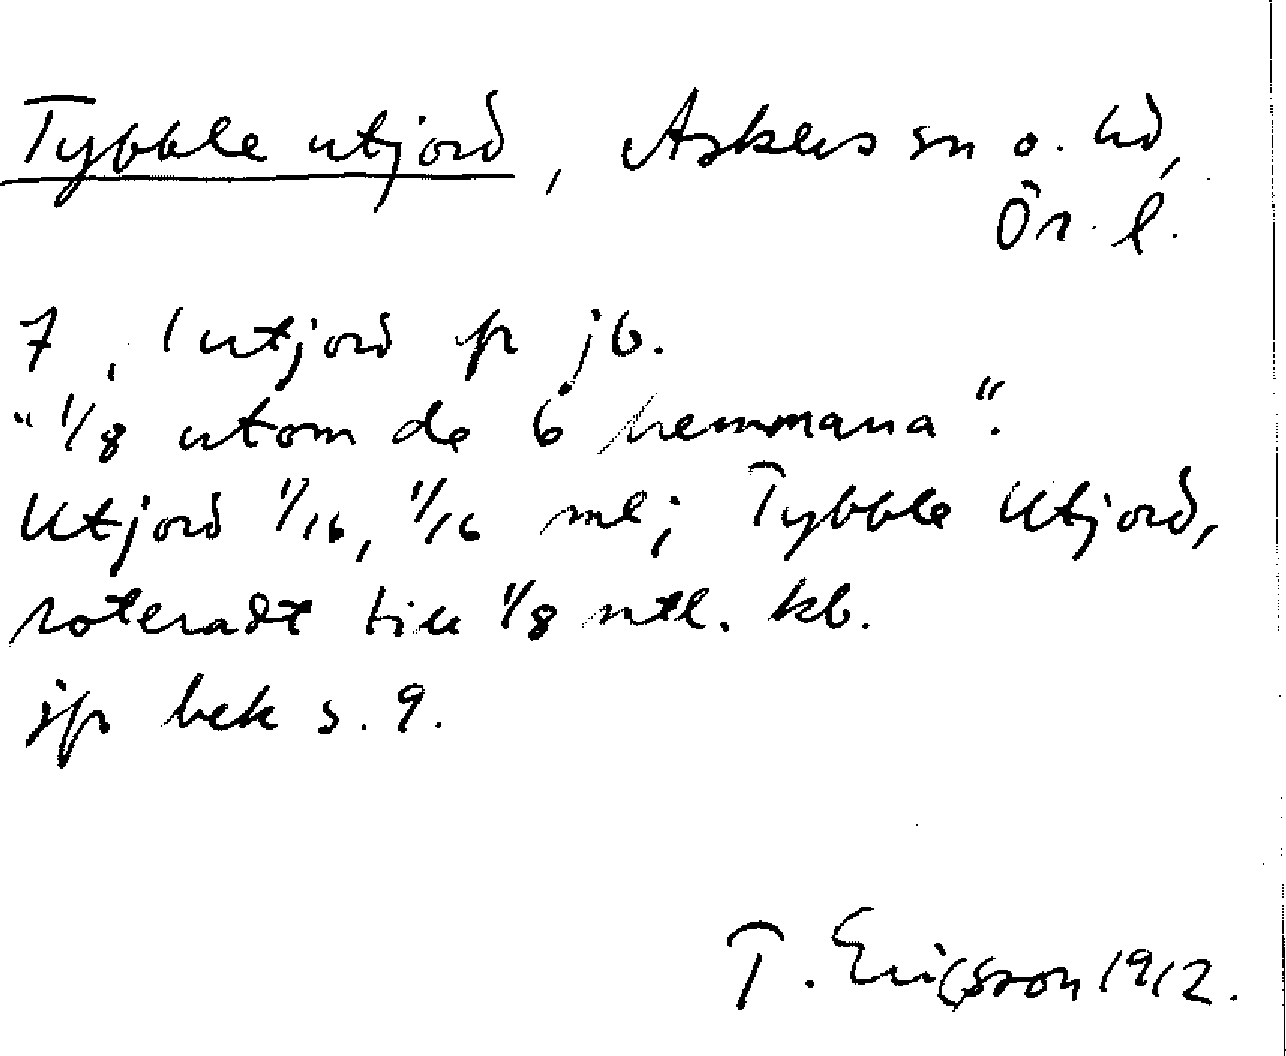 Tybble utjord, Askers sn o. hd,
Ör. l.
7, 1 utjord fr jb.
"1/8 utom de 6 hemmana".
Utjord 1/16, 1/16 ml; Tybble Utjord,
roteradt till 1/8 mtl. kb.
jfr bek s. 9.
T. Ericsson 1912.